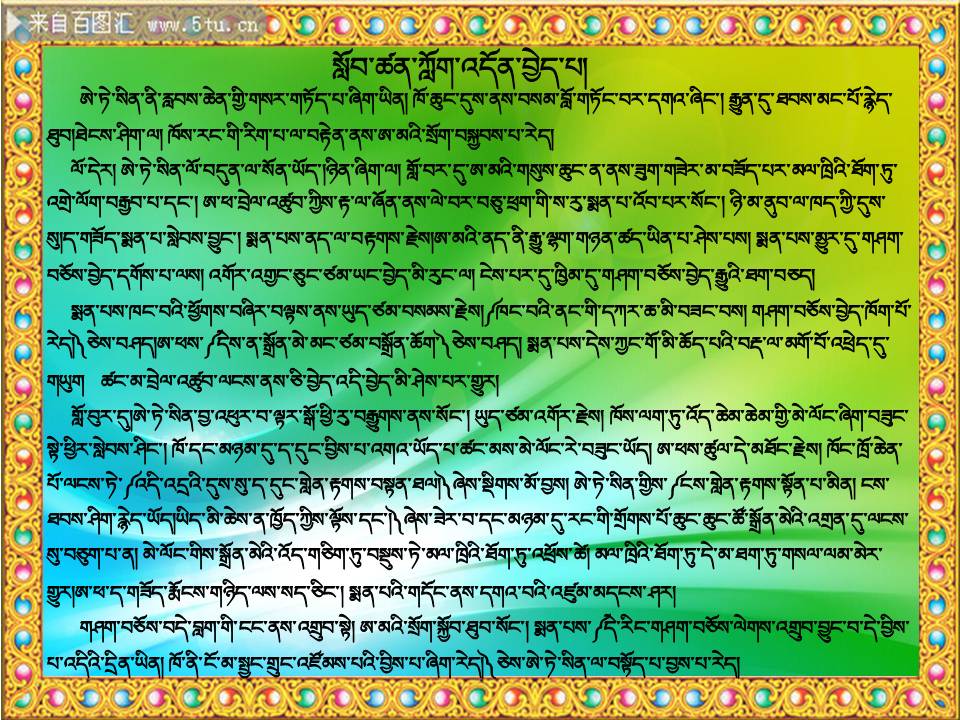 来自百图汇 www.5tu.cn
སློབ་ཚན་ཀློག་འདོན་བྱེད་པ།
ཨེ་ཏེ་སིན་ནི་རླབས་ཆེན་གྱི་གསར་གཏོད་པ་ཞིག་ཡིན། ཁོ་ཆུང་དུས་ནས་བསམ་བློ་གཏོང་བར་དགའ་ཞིང་། རྒྱུན་དུ་ཐབས་མང་པོ་རྙེད་
ཐུབ།ཐེངས་ཤིག་ལ། ཁོས་རང་གི་རིག་པ་ལ་བརྟེན་ནས་ཨ་མའི་སྲོག་བསྐྱབས་པ་རེད།
ལོ་དེར། ཨེ་ཏེ་སིན་ལོ་བདུན་ལ་སོན་ཡོད། ཉིན་ཞིག་ལ། གློ་བར་དུ་ཨ་མའི་གསུས་ཆུང་ན་ནས་ཟུག་གཟེར་མ་བཟོད་པར་མལ་ཁྲིའི་ཐོག་ཏུ་
འགྲེ་ལོག་བརྒྱབ་པ་དང་། ཨ་ཕ་བྲེལ་འཚུབ་ཀྱིས་རྟ་ལ་ཞོན་ནས་ལེ་བར་བཅུ་ཕྲག་གི་ས་རུ་སྨན་པ་འབོད་པར་སོང་། ཉི་མ་ནུབ་ལ་ཁད་ཀྱི་དུས་
སུ།ད་གཟོད་སྨན་པ་སླེབས་བྱུང་། སྨན་པས་ནད་ལ་བརྟགས་རྗེས།ཨ་མའི་ནད་ནི་རྒྱུ་ལྷག་གཉན་ཚད་ཡིན་པ་ཤེས་པས། སྨན་པས་མྱུར་དུ་གཤག་
བཅོས་བྱེད་དགོས་པ་ལས། འགོར་འགྱང་ཅུང་ཙམ་ཡང་བྱེད་མི་རུང་ལ། ངེས་པར་དུ་ཁྱིམ་དུ་གཤག་བཅོས་བྱེད་རྒྱུའི་ཐག་བཅད།
སྨན་པས་ཁང་བའི་ཕྱོགས་བཞིར་བལྟས་ནས་ཡུད་ཙམ་བསམས་རྗེས། ༼ཁང་བའི་ནང་གི་དཀར་ཆ་མི་བཟང་བས། གཤག་བཅོས་བྱེད་ཁོག་པོ་
རེད།༽ཅེས་བཤད།ཨ་ཕས་༼དེས་ན་སྒྲོན་མེ་མང་ཙམ་བསྒྲོན་ཆོག་༽ཅེས་བཤད། སྨན་པས་དེས་ཀྱང་གོ་མི་ཆོད་པའི་བརྡ་ལ་མགོ་བོ་འཕྲེད་དུ་
གཡུག ཚང་མ་བྲེལ་འཚུབ་ལངས་ནས་ཅི་བྱེད་འདི་བྱེད་མི་ཤེས་པར་གྱུར།
གློ་བུར་དུ།ཨེ་ཏེ་སིན་བྱ་འཕུར་བ་ལྟར་སྒོ་ཕྱི་རུ་བརྒྱུགས་ནས་སོང་། ཡུད་ཙམ་འགོར་རྗེས། ཁོས་ལག་ཏུ་འོད་ཆེམ་ཆེམ་གྱི་མེ་ལོང་ཞིག་བཟུང་
སྟེ་ཕྱིར་སླེབས་ཤིང་། ཁོ་དང་མཉམ་དུ་ད་དུང་བྱིས་པ་འགའ་ཡོད་པ་ཚང་མས་མེ་ལོང་རེ་བཟུང་ཡོད། ཨ་ཕས་ཚུལ་དེ་མཐོང་རྗེས། ཁོང་ཁྲོ་ཆེན་
པོ་ལངས་ཏེ་༼འདི་འདྲའི་དུས་སུ་ད་དུང་གླེན་རྟགས་བསྟན་ཐལ།༽ཞེས་སྡིགས་མོ་བྱས། ཨེ་ཏེ་སིན་གྱིས་༼ངས་གླེན་རྟགས་སྟོན་པ་མིན། ངས་
ཐབས་ཤིག་རྙེད་ཡོད།ཡིད་མི་ཆེས་ན་ཁྱོད་ཀྱིས་ལྟོས་དང་།༽ཞེས་ཟེར་བ་དང་མཉམ་དུ་རང་གི་གྲོགས་པོ་ཆུང་ཆུང་ཚོ་སྒྲོན་མེའི་འགྲན་དུ་ལངས་
སུ་བཅུག་པ་ན། མེ་ལོང་གིས་སྒྲོན་མེའི་འོད་གཅིག་ཏུ་བསྡུས་ཏེ་མལ་ཁྲིའི་ཐོག་ཏུ་འཕྲོས་ཚེ། མལ་ཁྲིའི་ཐོག་ཏུ་དེ་མ་ཐག་ཏུ་གསལ་ལམ་མེར་
གྱུར།ཨ་ཕ་ད་གཟོད་རྨོངས་གཉིད་ལས་སད་ཅིང་། སྨན་པའི་གདོང་ནས་དགའ་བའི་འཛུམ་མདངས་ཤར།
གཤག་བཅོས་བདེ་བླག་གི་ངང་ནས་འགྲུབ་སྟེ། ཨ་མའི་སྲོག་སྐྱོབ་ཐུབ་སོང་། སྨན་པས་༼དི་རིང་གཤག་བཅོས་ལེགས་འགྲུབ་བྱུང་བ་དེ་བྱིས་
པ་འདིའི་དྲིན་ཡིན། ཁོ་ནི་ངོ་མ་སྤྱང་གྲུང་འཛོམས་པའི་བྱིས་པ་ཞིག་རེད།༽ཅེས་ཨེ་ཏེ་སིན་ལ་བསྟོད་པ་བྱས་པ་རེད།